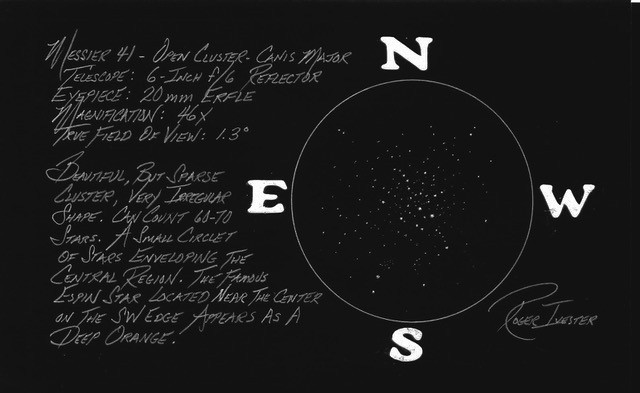 Messier 41 - Open Cluster - Canis Major
Telescope: 6-Inch f/6 Reflector
Eyepiece: 20mm Erfle
Magnification: 46X
True Field Of View: 1.3°
Beautiful, But Sparse
Cluster, Very Irregular
Shape. Can Count 60-70
Stars. A Small Circlet
Of Stars Enveloping The
Central Region. The Famous
Espin Star Located Near The Center
On The SW Edge Appears As A
Deep Orange.
N
E
W
S
Roger Ivester